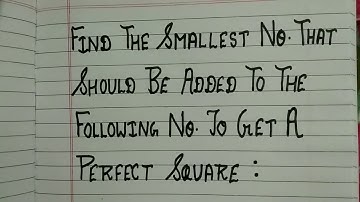 FIND THE SMALLEST NO. THAT
SHOULD BE ADDED TO THE
FOLLOWING NO. TO GET A
PERFECT SQUARE :